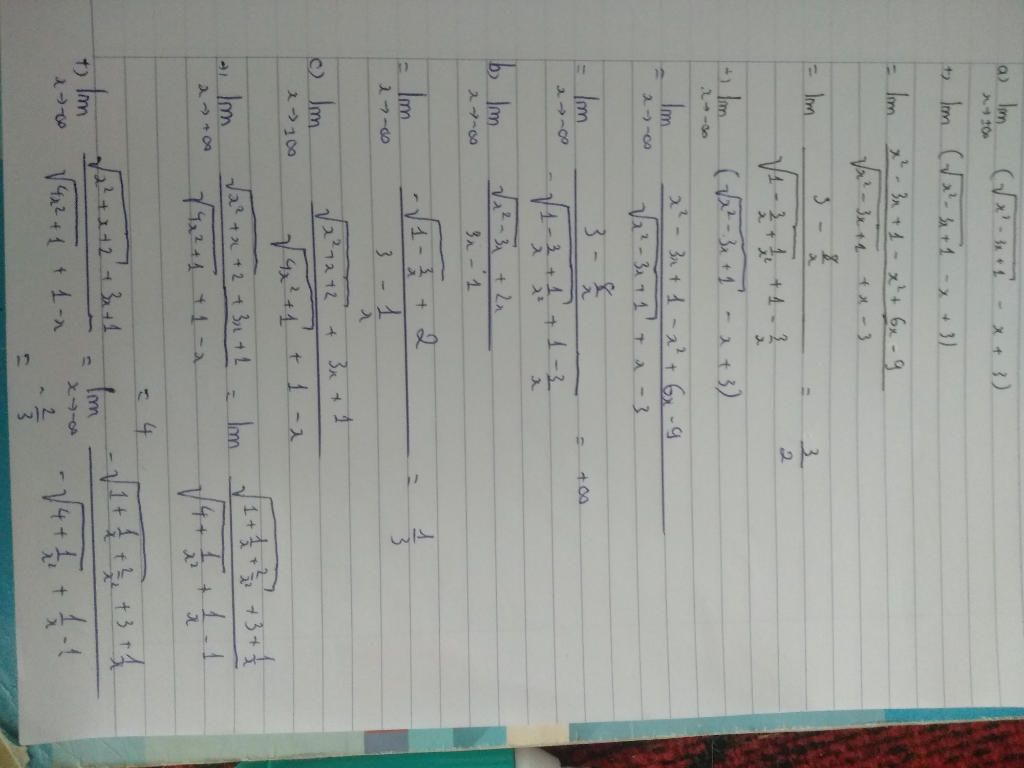 a) lim x→±∞ (√(x² - 3x + 1) - x + 3)
+) lim (√(x² - 3x + 1) - x + 3)
= lim (x² - 3x + 1 - x² + 6x - 9) / (√(x² - 3x + 1) + x - 3)
= lim (3 - 8/x) / (√(1 - 3/x + 1/x²) + 1 - 3/x) = 3/2
+) lim x→-∞ (√(x² - 3x + 1) - x + 3)
= lim x→-∞ (x² - 3x + 1 - x² + 6x - 9) / (√(x² - 3x + 1) + x - 3)
= lim x→-∞ (3 - 8/x) / (-√(1 - 3/x + 1/x²) + 1 - 3/x) = +∞
b) lim x→-∞ (√(x² - 3x) + 2x) / (3x - 1)
= lim x→-∞ (-√(1 - 3/x) + 2) / (3 - 1/x) = 1/3
c) lim x→±∞ (√(x² + x + 2) + 3x + 1) / (√(4x² + 1) + 1 - x)
+) lim x→+∞ (√(x² + x + 2) + 3x + 1) / (√(4x² + 1) + 1 - x) = lim (√(1 + 1/x + 2/x²) + 3 + 1/x) / (√(4 + 1/x²) + 1/x - 1)
= 4
+) lim x→-∞ (√(x² + x + 2) + 3x + 1) / (√(4x² + 1) + 1 - x) = lim x→-∞ (-√(1 + 1/x + 2/x²) + 3 + 1/x) / (-√(4 + 1/x²) + 1/x - 1)
= -2/3